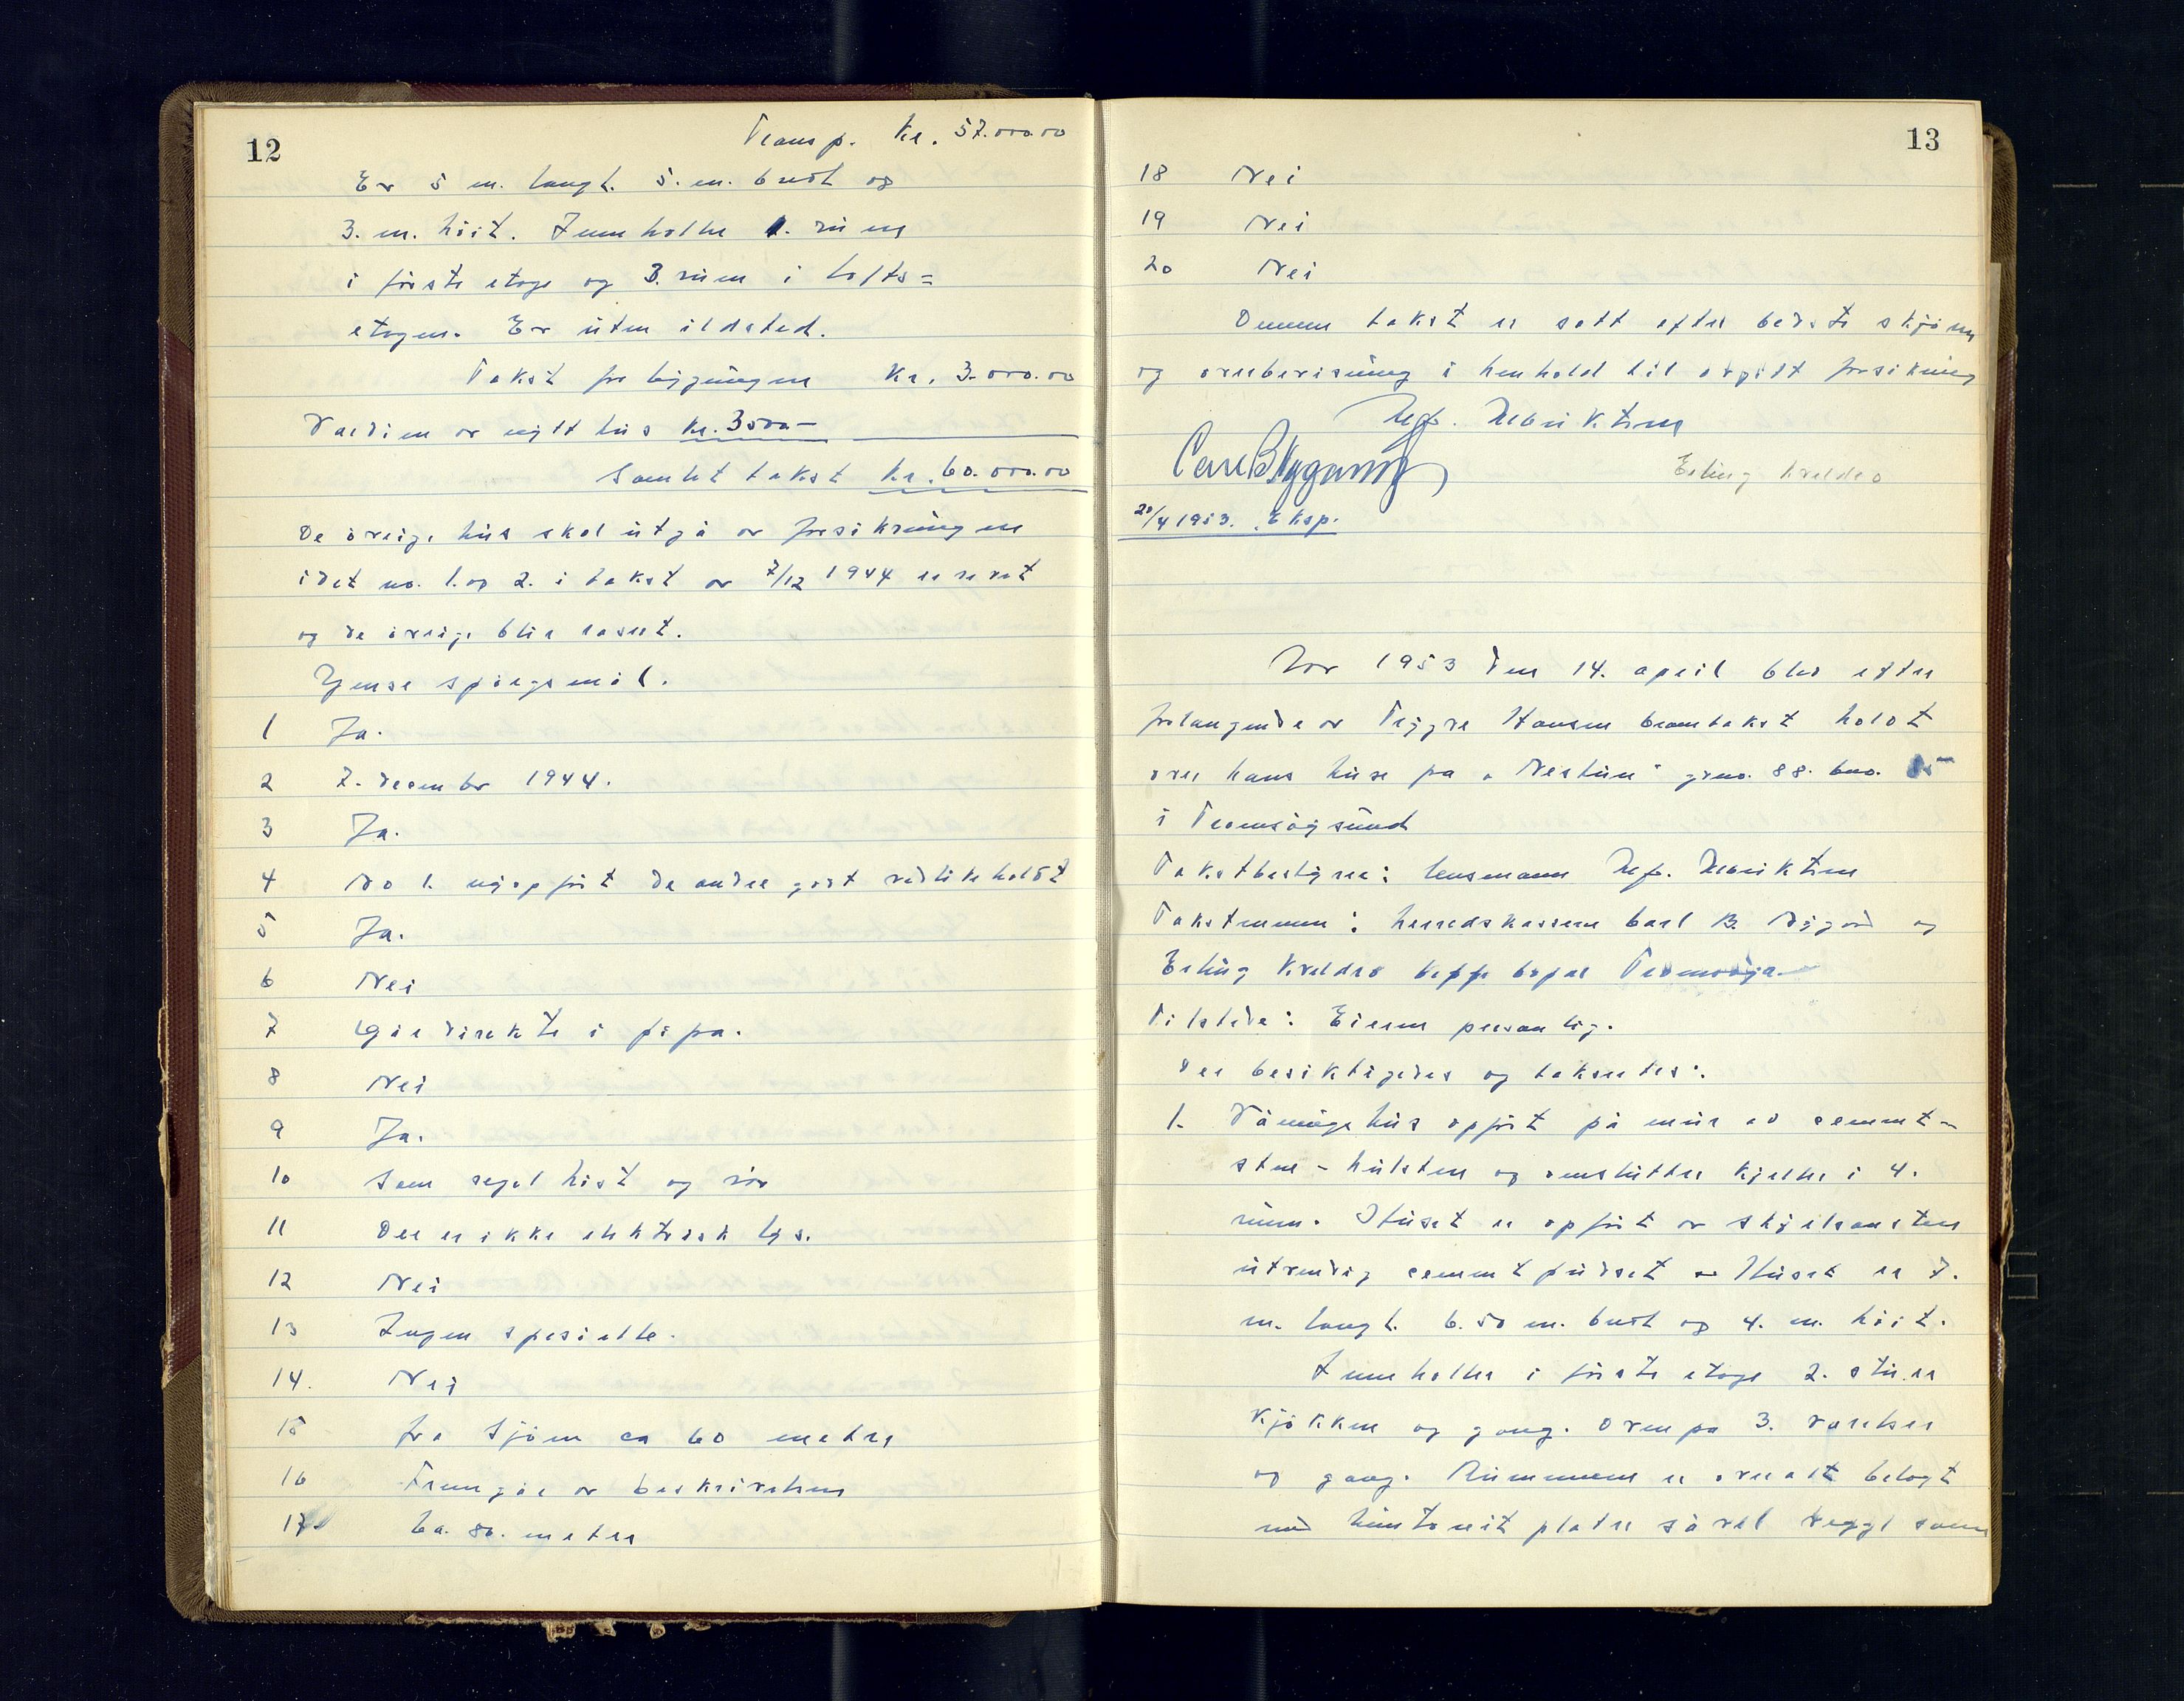 12
Transp. Kr. 57.000.00
Er 5 m. langt. 5. m. bredt og
3. m. höit. Inneholder 1. rum
i förste etage og 3. rum i lofts=
etagen. Er uten ildsted.
Takst for bygningen Kr. 3.000.00
Verdien av nytt hus kr. 3500-
Samlet takst kr. 60.000.00
De övrige hus skal utgå av forsikringen
idet no. 1. og 2. i takst av 7/12 1944 er revet
og de övrige blir raseret.
Gjense spörgsmål.
1 Ja.
2 7. december 1944.
3 Ja.
4 No 1. nyopfört de andre godt vedlikeholdt
5 Ja.
6 Nei
7 Går direkte i pipa.
8 Nei
9 Ja.
10 Som regel höst og vår
11 Der er ikke elektrisk lys.
12 Nei
13 Ingen spesielle.
14. Nei
15 fra Sjöen ca 60 meter
16 Fremgår av beskrivelsen
17 Ca. 80. meter
13
18 Nei
19 Nei
20 Nei
Denne takst er satt efter bedste skjönn
og overbevisning i henhold til avgitt forsikring
Carl B Nygaard
Erling Kveldro
20/4 1953. Eksp.
Aar 1953 den 14. april blev efter
forlangende av Trygve Hansen branntakst holdt
over hans huse pa „Nestun" gno. 88. bno.
i Tromsöysund
Takstbestyrer: lensmann
Takstmenn: herredskasserer Carl B. Nygård og
Erling Kveldro begge bopæl Tromsöya
Tilstede: Eieren personlig.
Der besiktigedes og takseredes:
1. Våningshus opfört på mur av cement-
sten - hulsten og omslutter kjeller i 4.
rum. Huset er opfört av skjelsandsten
utvendig cementpudset - Huset er 7.
m. langt. 6.50 m. bredt og 4. m. höit.
Inneholder i förste etage 2. stuer
kjökken og gang. Oven pa 3. værelser
og gang. Rummene er overalt belagt
med huntonit plater så vel vegger som